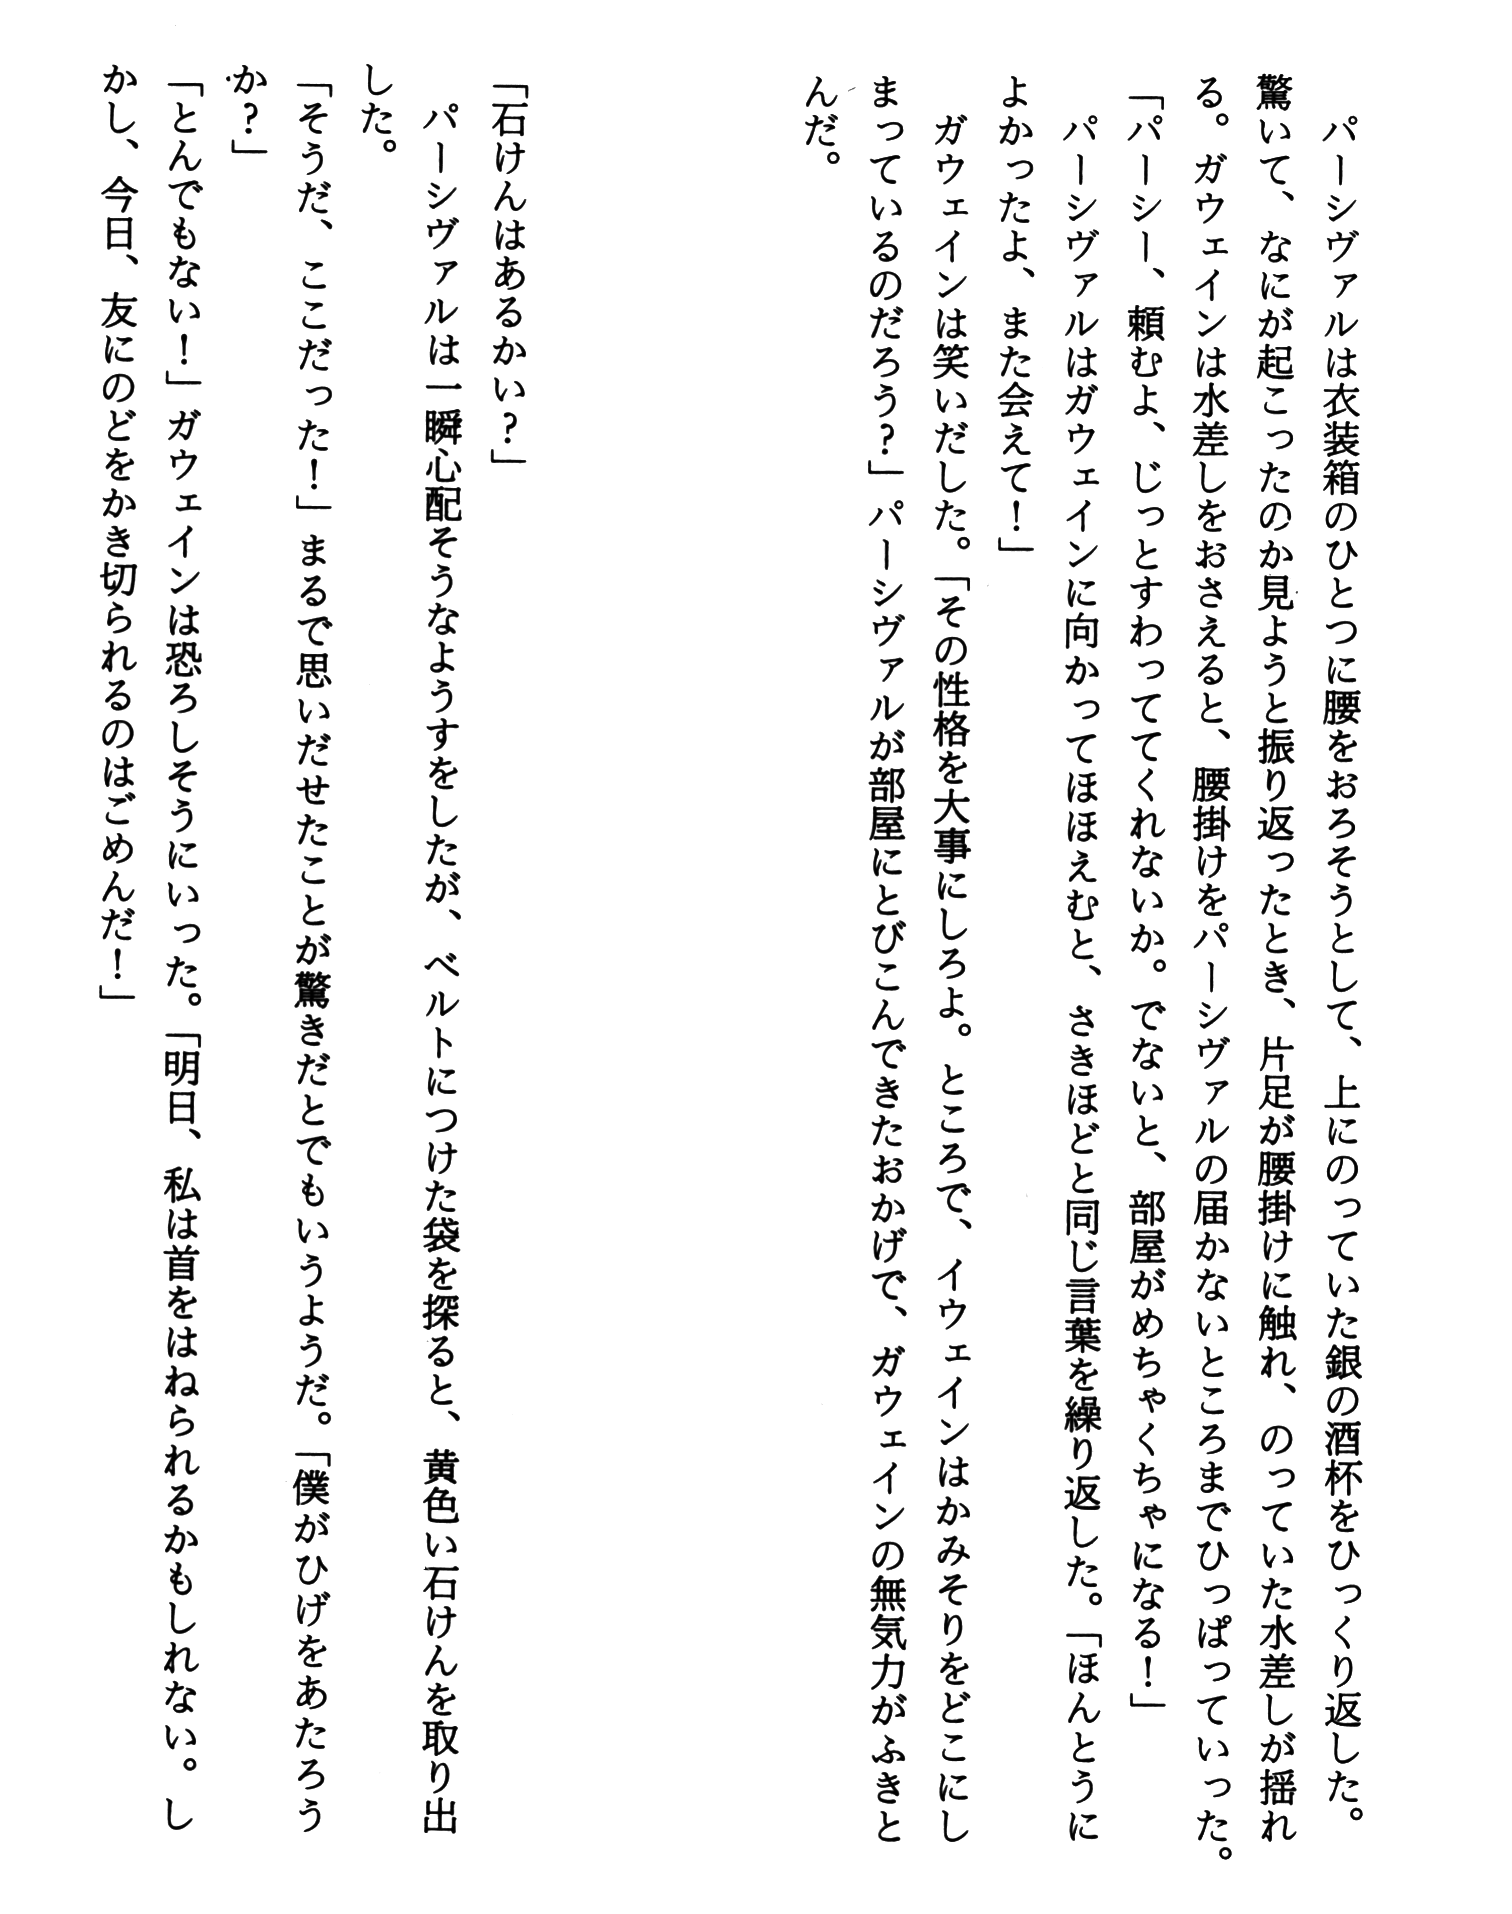 パーシヴァルは衣装箱のひとつに腰をおろそうとして、上にのっていた銀の酒杯をひっくり返した。
驚いて、なにが起こったのか見ようと振り返ったとき、片足が腰掛けに触れ、のっていた水差しが揺れ
る。ガウェインは水差しをおさえると、腰掛けをパーシヴァルの届かないところまでひっぱっていった。
「パーシー、頼むよ、じっとすわっててくれないか。でないと、部屋がめちゃくちゃになる！」
　パーシヴァルはガウェインに向かってほほえむと、さきほどと同じ言葉を繰り返した。「ほんとうに
よかったよ、また会えて！」
　ガウェインは笑いだした。「その性格を大事にしろよ。ところで、イウェインはかみそりをどこにし
まっているのだろう？」パーシヴァルが部屋にとびこんできたおかげで、ガウェインの無気力がふきと
んだ。
「石けんはあるかい？」
　パーシヴァルは一瞬心配そうなようすをしたが、ベルトにつけた袋を探ると、黄色い石けんを取り出
した。
「そうだ、ここだった！」まるで思いだせたことが驚きだとでもいうようだ。「僕がひげをあたろう
か？」
「とんでもない！」ガウェインは恐ろしそうにいった。「明日、私は首をはねられるかもしれない。し
かし、今日、友にのどをかき切られるのはごめんだ！」